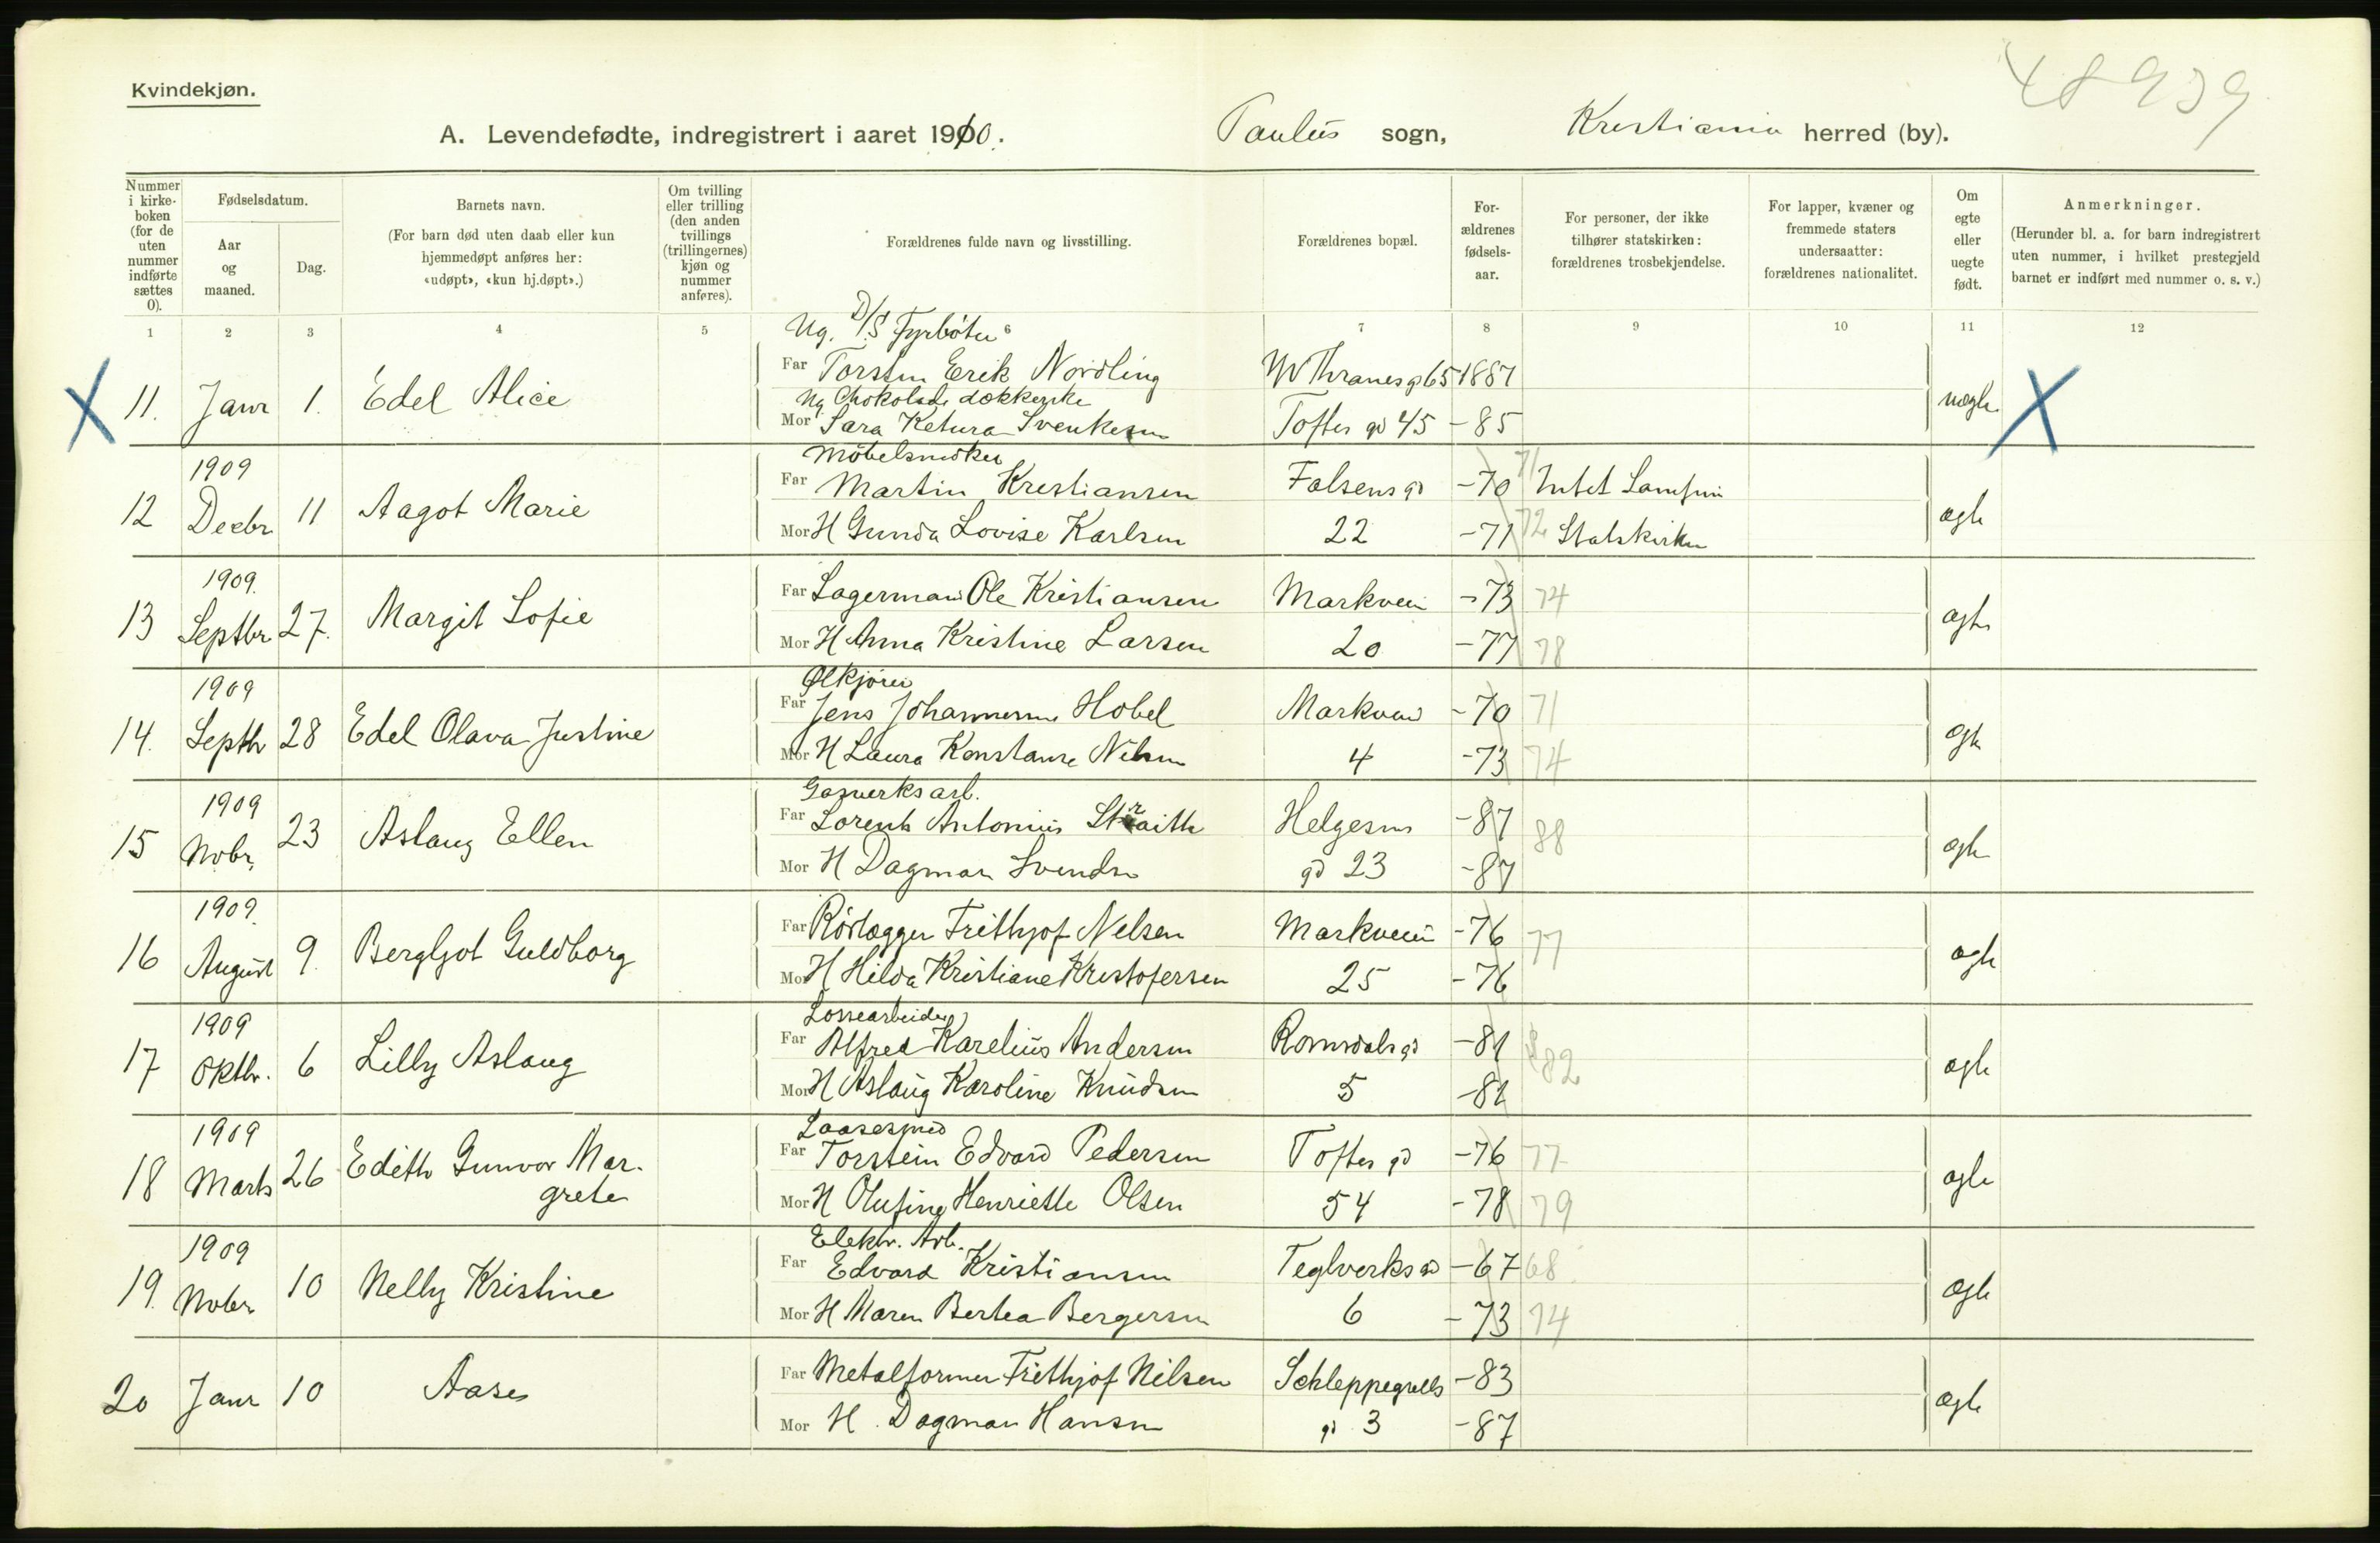 Kvindekjøn.
48939
A. Levendefødte, indregistrert i aaret 1910. Paulus sogn, Kristiania herred (by).
Nummer i kirkeboken (for de uten nummer indførte sættes 0).
Fødselsdatum.
Aar og maaned.
Dag.
Barnets navn.
(For barn død uten daab eller kun hjemmedøpt anføres her: «udøpt», «kun hj.døpt».)
Om tvilling eller trilling (den anden tvillings (trillingernes) kjøn og nummer anføres).
Forældrenes fulde navn og livsstilling.
Forældrenes bopæl.
Forældrenes fødselsaar.
For personer, der ikke tilhører statskirken: forældrenes trosbekjendelse.
For lapper, kvæner og fremmede staters undersaatter: forældrenes nationalitet.
Om egte eller uegte født.
Anmerkninger.
(Herunder bl. a. for barn indregistrert uten nummer, i hvilket prestegjeld barnet er indført med nummer o. s. v.)
1 2 3 4 5 6 7 8 9 10 11 12
Ug. D/S Fyrbøter
Far Torsten Erik Nordling Thranes g 65 1887
X 11. Janr 1. Edel Alice uægte X
Ug Chokolade
Mor Sara Ketura Toftes gd 45 -85
Møbelsnedker
1909 Far Martin Kristiansen Falsens gd -70 71 Intet Samfund
12 Decbr 11 Aagot Marie ægte
Mor H Gunda Lovise Karlsen 22 -71 72 Statskirken
1909. Far Lagermand Ole Kristiansen Markveien -73 74
13 Septbr 27. Margit Sofie ægte
Mor H Anna Kristine Larsen 20 -77 78
Ølkjører
1909 Far Jens Johannesen Hobel Markveien -70 71
14. Septb 28 Edel Olava Justine ægte
Mor H Laura Konstanse Nilsen 4 -73 74
Gasverksarb.
1909 Far Lorents Antonius Helgesens -87
15 Novbr. 23 Aslaug Ellen 88 ægte
Mor H Dagmar Svendsen gd 23 -87
1909. Far Rørlægger Frithjof Nelsen Markveien -76
16 August 9. Bergljot Guldborg 77 ægte
Mor H Hilda Kristiane Kristofersen 25 -76
Lossearbeider
1909 Far Alfred Karelius Andersen Romsdals gd -81
17 Oktbr. 6 Lilly Aslaug 82 ægte
Mor H Aslaug Karoline Knudsen 5 -81
Laasesmed
1909 Far Torstein Edvard Pedersen Toftes gd -76 77
18 Marts 26 Edith Gunvor Mar-
grete ægte
Mor H Olufine Henriette Olsen 54 -78 79
Elektr. Arb.
1909 Far Edvard Kristiansen Teglverks gd -67 68
19. Novbr. 10 Nelly Kristine ægte
Mor H Maren Bertea Bergersen 6 -73 74
Far Metalformer Frithjof Nilsen Schleppegrells -83
20 Janr 10 Aase ægte
Mor H. Dagmar Hansen gd 3 -87